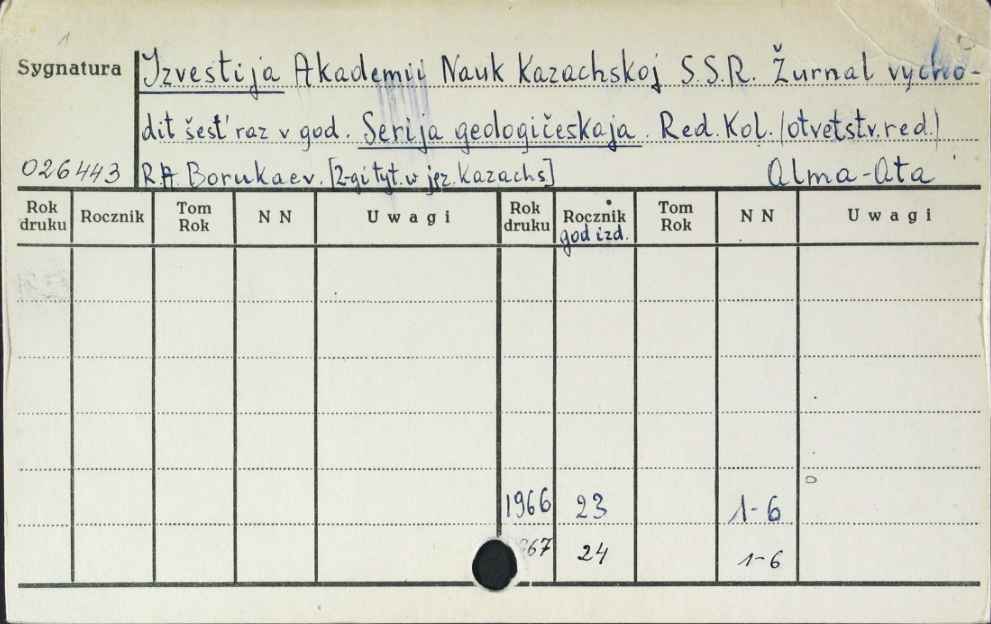 1
Sygnatura Izvestija Akademij Nauk Kazachskoj S.S.R. Žurnal vycho-
dit šest' raz v god. Serija geologičeskaja. Red. Kol. (otvetstv. red.)
026443 R.A. Borukaev. [2-gi tyt. w jęz. kazachs] Alma-Ata
Rok druku Rocznik Tom Rok N N Uwagi Rok druku Rocznik god izd. Tom Rok N N Uwagi
1966 23 1-6
67 24 1-6